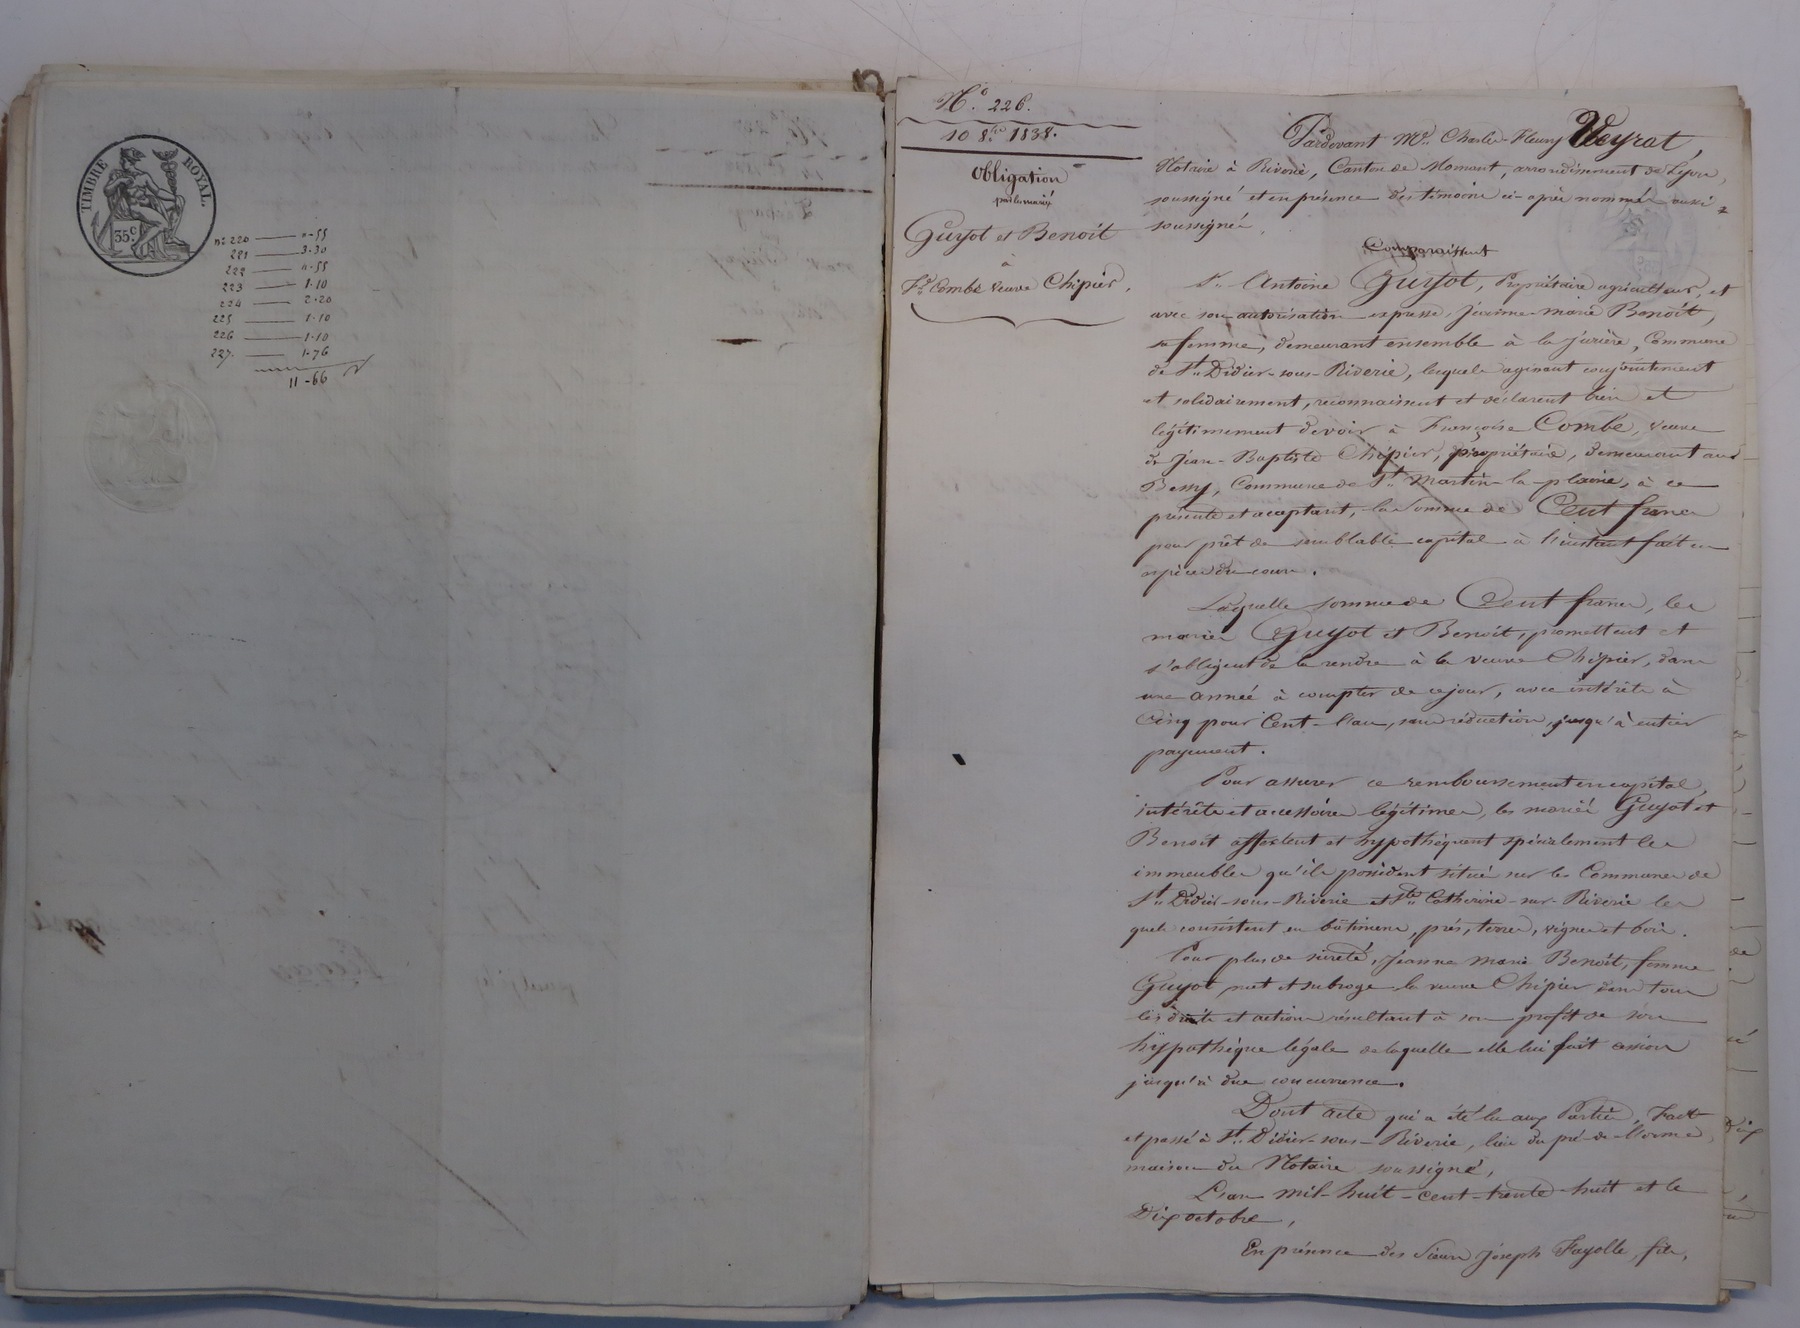 TIMBRE ROYAL.
35 c.
n.os 220 — 0-55
221 — 3-30
222 — 0-55
223 — 1-10
224 — 2-20
225 — 1-10
226 — 1-10
227. — 1-76
11-66
N.o 226.
10 8.bre 1838.
Obligation
par les mariés
Guyot et Benoît
à
F.se Combe veuve Chipier.
Pardevant M.e Charles-Fleury Veyrat,
Notaire à Riverie, Canton de Mornant, arrondissement de Lyon,
soussigné et en présence des témoins ci-après nommés aussi
soussignés,
Comparaissent
S.r Antoine Guyot, Propriétaire agriculteur, et
avec son autorisation expresse, Jeanne-marie Benoît,
sa femme, demeurant ensemble à la jurière, Commune
de S.t Didier-sous-Riverie, lesquels agissant conjointement
et solidairement, reconnaissent et déclarent bien et
légitimement devoir à Françoise Combe, veuve
de Jean-Baptiste Chipier, propriétaire, demeurant au
Bessy, Commune de S.t Martin-la-plaine, à ce
présente et acceptant, la somme de Cent francs
pour prêt de semblable capital à l'instant fait en
espèces du cours.
Laquelle somme de Cent francs, les
mariés Guyot et Benoît, promettent et
s'obligent de la rendre à la veuve Chipier, dans
une année à compter de ce jour, avec intérêts à
Cinq pour Cent l'an, sans réduction, jusqu'à entier
payement.
Pour assurer ce remboursement en capital,
intérêts et accessoires légitimes, les mariés Guyot et
Benoît affectent et hypothèquent spécialement les
immeubles qu'ils possèdent situés sur les Communes de
S.t Didier-sous-Riverie et S.te Catherine-sur-Riverie les
quels consistent en bâtimens, prés, terres, vignes et bois.
Pour plus de sûreté, Jeanne marie Benoît, femme
Guyot, met et subroge la veuve Chipier dans tous
les droits et actions résultant à son profit de son
hypothèque légale de laquelle elle lui fait cession
jusqu'à due concurrence.
Dont acte qui a été lu aux Parties, Fait
et passé à S.t Didier-sous-Riverie, lieu du pré-de-l'orme,
maison du Notaire soussigné,
L'an mil-huit-cent-trente-huit et le
Dix octobre,
En présence des Sieurs Joseph Fayolle, fils,